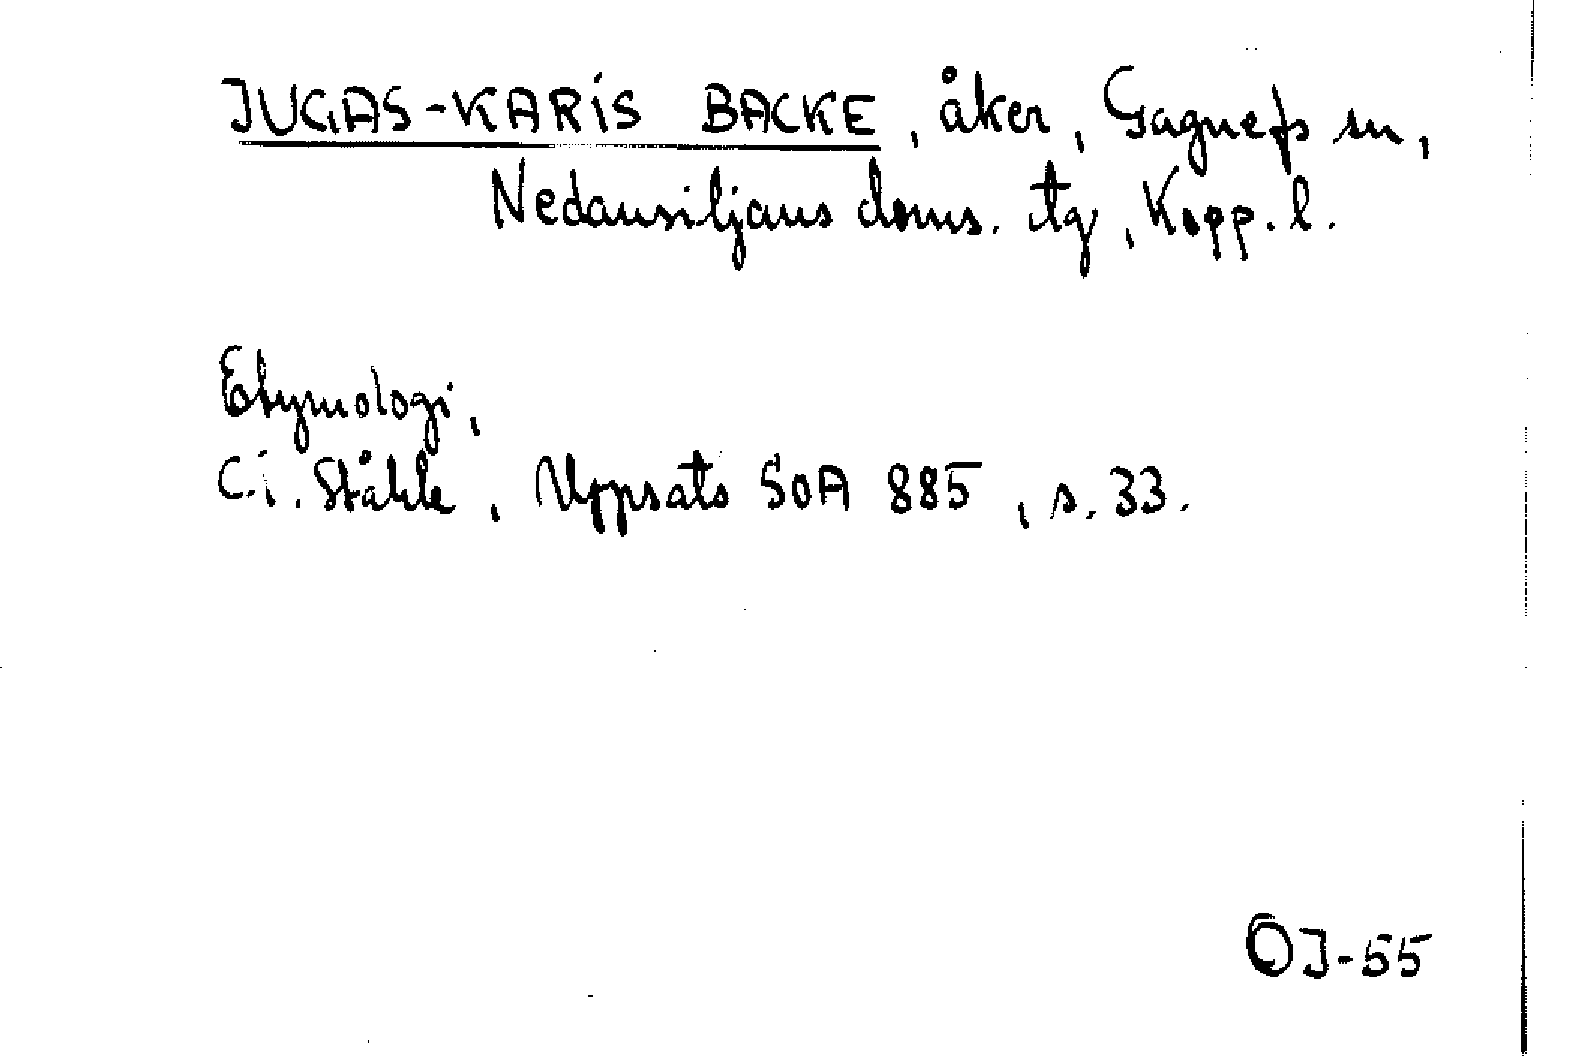 JUGAS-KARIS BACKE, åker, Gagnefs sn,
Nedansiljans doms. tg, Kopp. l.
Etymologi,
C.I. Ståhle, Uppsats SOA 885, s. 33.
OJ-55